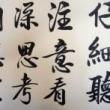 仔細聽
注意看
深思考